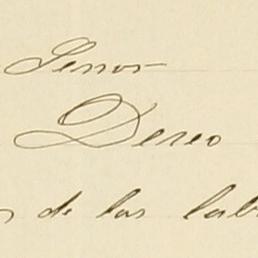 Señor
Deseo
de las lab